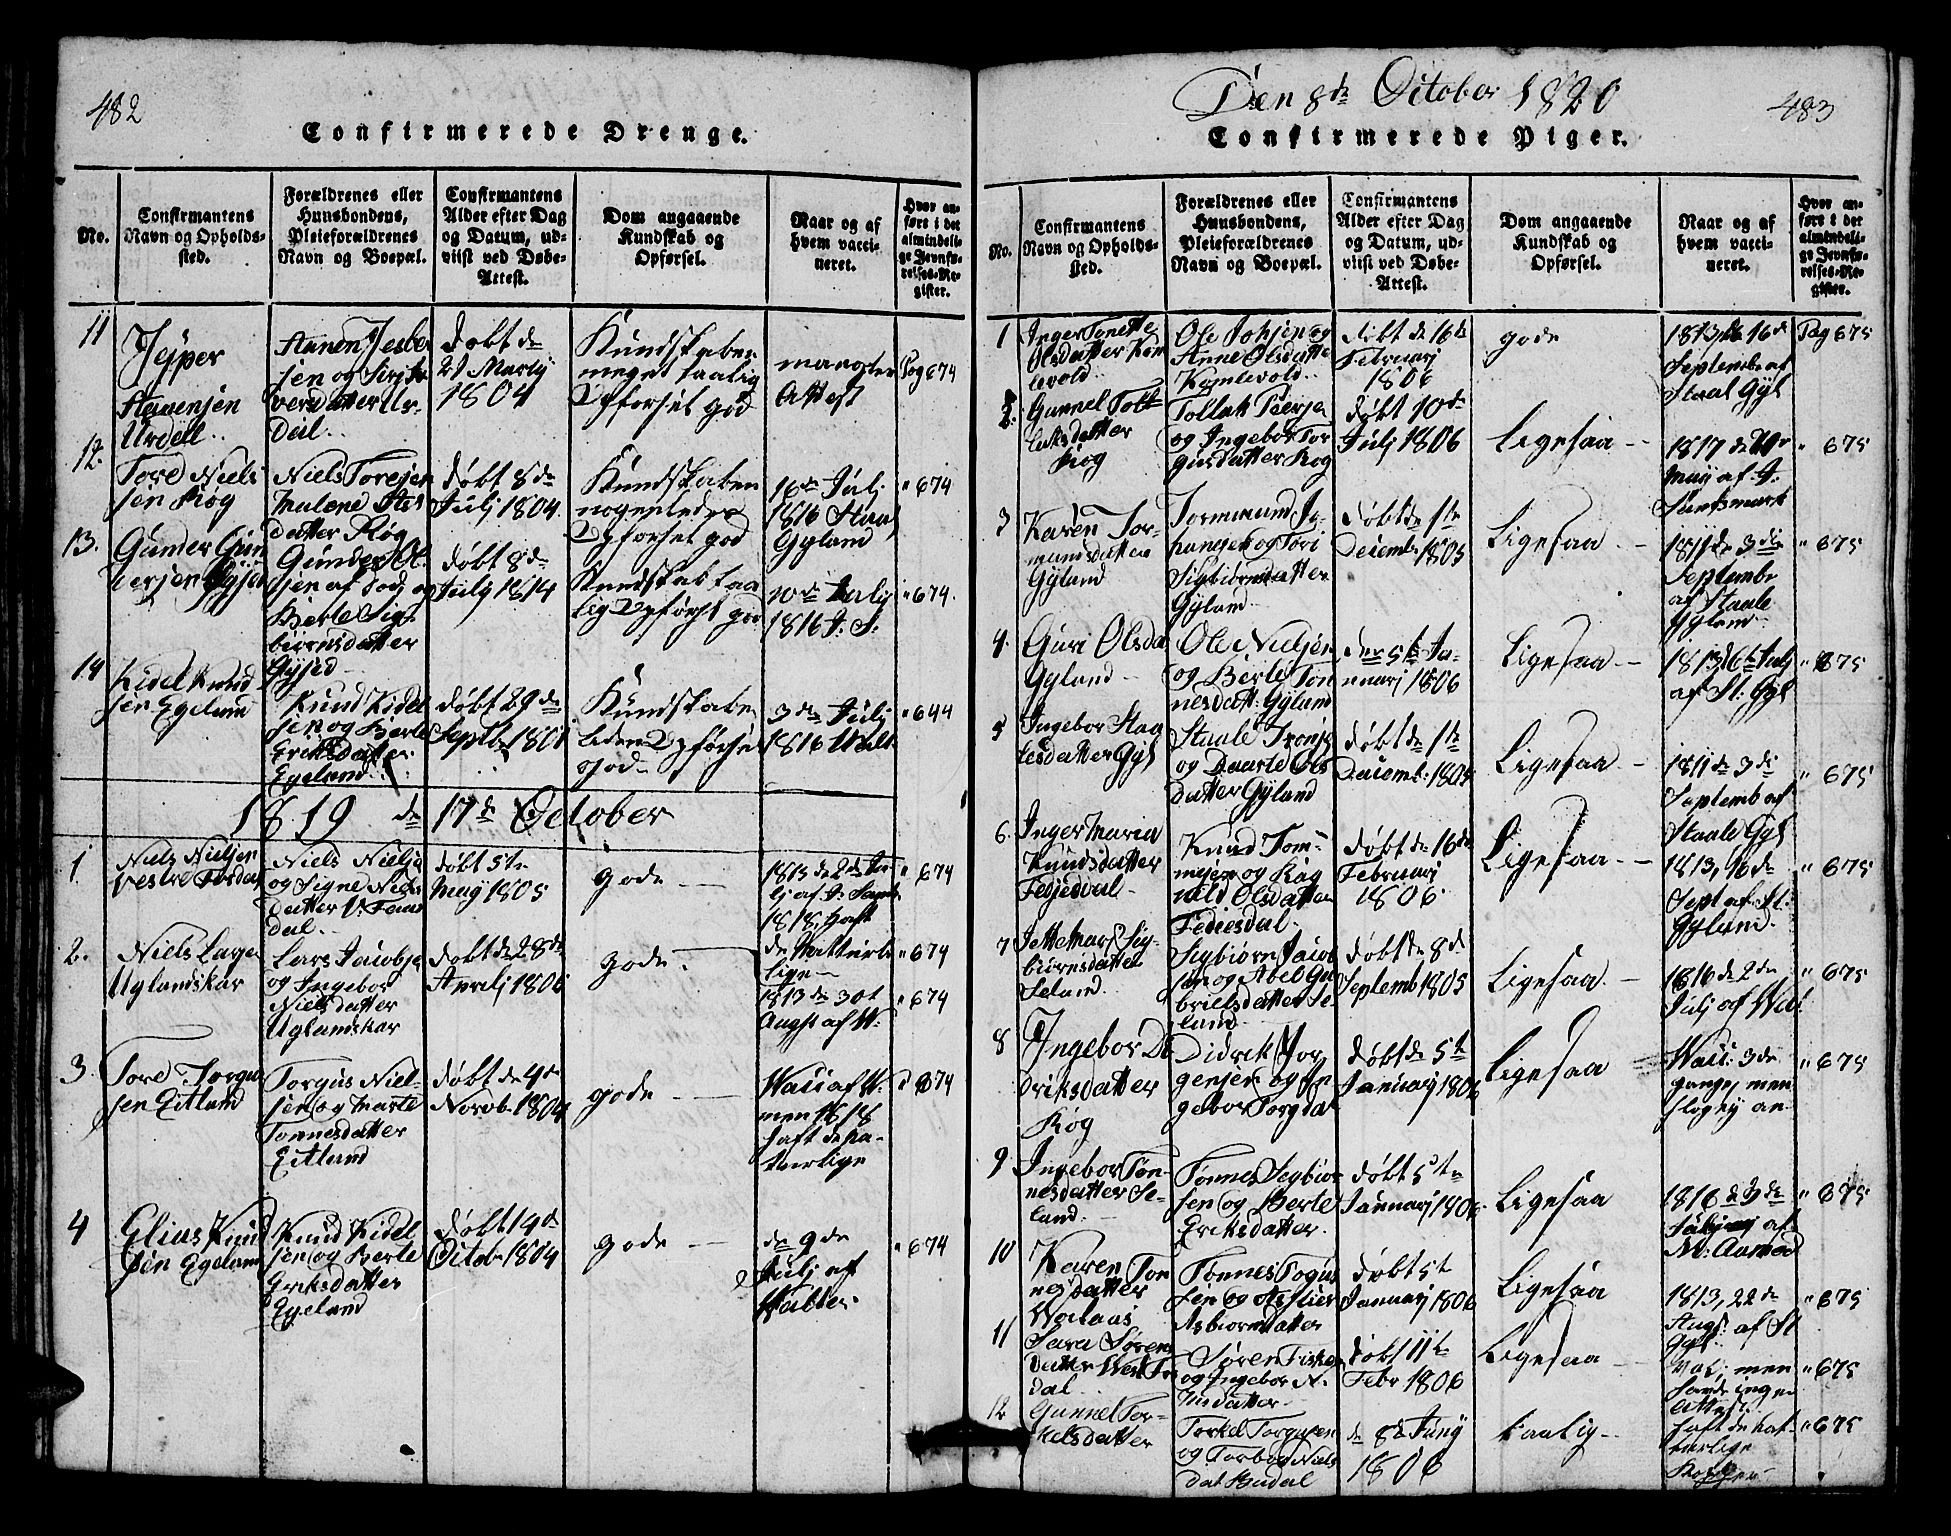 482
Confirmerede Drenge.
No.
Confirmantens
Navn og Opholds-
sted.
Forældrenes eller
Huusbondens,
Pleieforældrenes
Navn og Boepæl.
Confirmantens
Alder efter Dag
og Datum, ud-
viist ved Døbe-
Attest.
Dom angaaende
Kundskab og
Opførsel.
Naar og af
hvem vacci-
neret.
Hvor an-
ført i det
almindeli-
ge Jevnfø-
relses-Re-
gister.
11
Jesper
Aanensen
Urdell..
Aanen Jesber
sen og Siri
versdatter Ur-
dal..
døbt de
21 Martij
1804
Kundskaben
meget taalig
Opførsel god
mangler
Attest
Pag 674
12.
Tore Niels
sen Røg
Niels Toresen
Malene
datter Røg
døbt 8de
Julj 1804
Kundskaben
nogenledes
Opførsel god
16de Julj
1816 Staal
Gyland
" 674
13.
Gunder Gun
dersen
Gunder Ol
sen
Berte Sig-
biørnsdatter
døbt 8de
Kundskab taa
lig Opførsel god
10de Julij
1816 J: S:
" 674.
14
Kidel Knud
sen Egeland
Knud Kidel
sen og Berte
Eriksdatter
Egeland..
døbt 29de
Septb: 1801
Kundskaben
liden Opførsel
god
3de Julj
1816
" 644
1819 de 17de October
1
Niels Nielsen
Niels Nielsen
og Signe Niels
datter
dal..
døbt 5te
Maij 1805
gode
lj af
1818 haft
" 674
2.
Niels Larsen
Uglandskar
Lars Jacobsen
og Ingebor
Nielsdatter
Uglandskar
døbt de 28de
gode.
de Naturli
lige
1813 de 30t
Augst af W:
" 674
" 674
3.
Tore Torgus
sen Eitland
Torgus Niel-
sen og Marte
Tonnesdatter
Eitland
døbt de 4de
Novb. 1804
gode
Vacc af W:
men 1818
haft de na-
turlige
674
4
Elias Knud
sen Egeland
Knud Kidel
sen og Berte
Eriksdatter
Egeland
døbt 14de
Octob 1804
gode
de 9de
Julj af
" 674
Den 8de October 1820
483
Confirmerede Piger.
No.
Confirmantens
Navn og Opholds-
sted.
Forældrenes eller
Huusbondens,
Pleieforældrenes
Navn og Boepæl.
Confirmantens
Alder efter Dag
og Datum, ud-
viist ved Døbe-
Attest.
Dom angaaende
Kundskab og
Opførsel.
Naar og af
hvem vacci-
neret.
Hvor an-
ført i det
almindeli-
ge Jevnfø-
relses-Re-
gister.
1
Inger Tonette
Olsdatter Kom
levold
Ole
Anne Olsdatter
Komlevold..
døbt de 16de
Februarj
1806
gode
1813 de 16de
Septembr af
Staal Gyl
Pag 675
2.
Gunnel Tol
laksdatter
Røg
Tollak Peersen
og Ingebor Tor
gusdatter Røg
døbt 10de
Julj 1806
Ligesaa
1817 de
Maij af J.
Sandsmark
" 675
3
Karen Tor-
mundsdatter
Gyland
Tormund Jo-
hansen og Tori
Sigbiørnsdatter
Gyland
døbt de 1te
Decemb 1805
Ligesaa
1811 de 3die
Septembr
af Staale
Gyland
" 675
4.
Guri Olsda
Gyland
Ole Nielsen
og Berte Ton
nesdatt: Gyland
den 5te Ja-
nuarj 1806
Ligesaa
1813 16de Julj
af St: Gyl
" 675
5
Ingebor Staa
lesdatter Gyl
Staale Tronsen
og Daarte Ols
datter Gyland
døbt de 1te
Decemb: 1805
Ligesaa
1811 de 3de
Septemb af
Staale Gyl
" 675
6.
Inger Maria
Knudsdatter
Fedjesdal
Knud Tom-
mesen og Rag
nild Olsdatter
Fediesdal.
døbt de 16de
Februarj
1806.
Ligesaa
1813, 16de
Sept af St:
Gyland.
" 675
7
Jette Mari Sig-
biørnsdatter
Seland.
Sigbiørn Jacob
sen og Abel Ga
brielsdatter Se-
land
døbt de 8de
Septemb 1805
Ligesaa
1816 de 2den
Julj af
" 675
8
Ingebor Di
driksdatter
Røg
Didrik Jør
gensen og In
gebor Torgdat
døbt de 5te
Januarj 1806
Ligesaa
Vacc: 3de
gange, men
slog ej an
" 675
9
Ingebor Tøn-
nesdatter Se-
land
Tønnes Segbiør
sen og Berte
Eriksdatter.
døbt 5te
Januarj 1806
Ligesaa
1816 de 3de
af
M: Aamod
" 675
10
Karen Ton
nesdatter
Tønnes Togus
sen og
Asbiørnsdatter
døbt 5te
Januarj 1806
Ligesaa
1813, 22de
Augs: af St
Gyl:
" 675
11
Sara Sørens
datter
dal
Søren
og Ingebor N.
døbt 11te
Febr 1806
Ligesaa
men
" 675
12
Gunnel Tor-
kelsdatter
Torkel Torgusen
og Torbor Niels
dat Budal
de 8de Junij
1806
taalig
haft de nat-
turlige
" 675